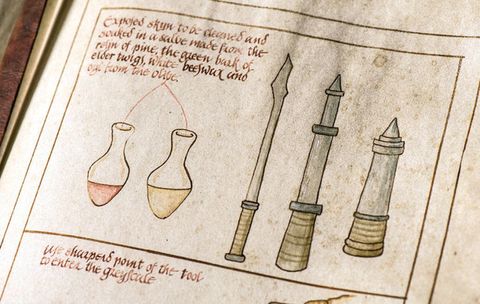 Exposed skyn to be cleaned and
soaked in a salve made from the
resyn of pine, the green bark of
elder twigs, white beeswax and
oyl from the olive.
Use sharpend point of the tool
to enter the greyscale